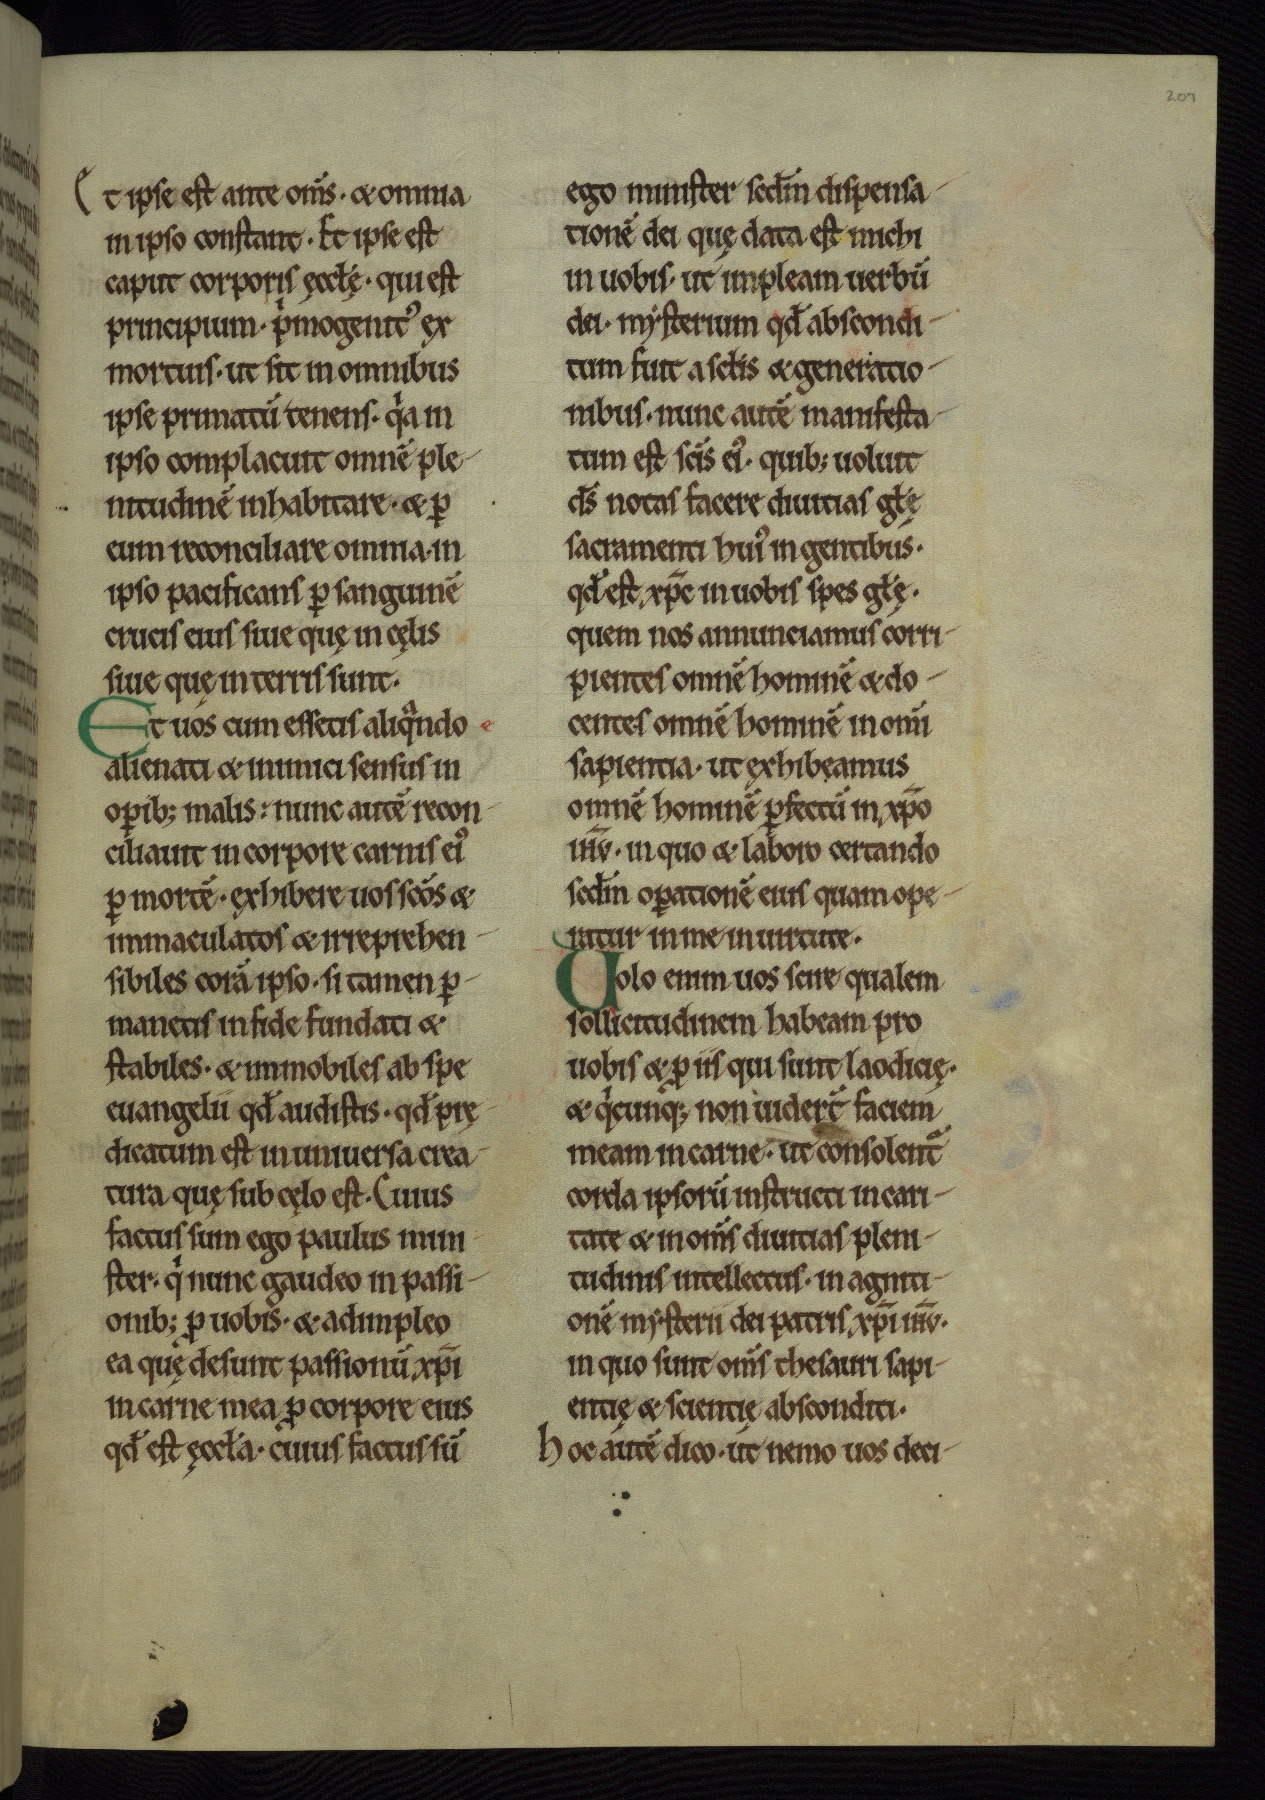 207
Et ipse est ante om̅s · & omnia
in ipso constant · Et ipse est
caput corporis ęccłę · qui est
principium · pͥmogenitꝰ ex
mortuis · ut sit in omnibus
ipse primatū tenens · qͥa in
ipso complacuit omnē ple-
nitudinē inhabitare · & ꝑ
eum reconciliare omnia · in
ipso pacificans ꝑ sanguinē
crucis eius siue quę in cęlis
siue quę in terris sunt ·
Et uos cum essetis aliqᷓndo
alienati & inimici sensus in
oꝑib; malis : nunc autē recon-
ciliauit in corpore carnis eiꝰ
ꝑ mortē · exhibere uos sc̅os &
immaculatos & irreprehen-
sibiles corā ipso · si tamen ꝑ-
manetis in fide fundati &
stabiles · & immobiles ab spe
euangelii qd̅ audistis · qd̅ prę-
dicatum est in uniuersa crea-
tura quę sub cęlo est · Cuius
factus sum ego paulus mini-
ster · qͥ nunc gaudeo in passi-
onib; ꝓ uobis · & adimpleo
ea quę desunt passionū xp̅i
in carne mea ꝓ corpore eius
qd̅ est ęccła · cuius factus sū
ego minister scd̅m dispensa-
tionē dei quę data est michi
in uobis · ut impleam uerbū
dei · mẏsterium qd̅ abscondi-
tum fuit a sc̅lis & generatio-
nibus · nunc autē manifesta-
tum est sc̅is eiꝰ · quib; uoluit
ds̅ notas facere diuitias głę
sacramenti huiꝰ in gentibus ·
qd̅ est xp̅c in uobis spes głę ·
quem nos annunciamus corri-
pientes omnē hominē & do-
centes omnē hominē in om̅i
sapientia · ut exhibeamus
omnē hominē ꝑfectū in xp̅o
ih̅u · in quo & laboro certando
scd̅m oꝑationē eius quam ope-
ratur in me in uirtute ·
Uolo enim uos scire qualem
sollicitudinem habeam pro
uobis & ꝓ iis qui sunt laodicię ·
& qͥcunq; non uider̅t faciem
meam in carne · ut consolentᷓ
corda ipsorū instructi in cari-
tate & in om̅s diuitias pleni-
tudinis intellectus · in agniti-
onē mẏsterii dei patris xp̅i ih̅u ·
in quo sunt om̅s thesauri sapi-
entię & scientię absconditi ·
hoc autē dico · ut nemo uos deci-